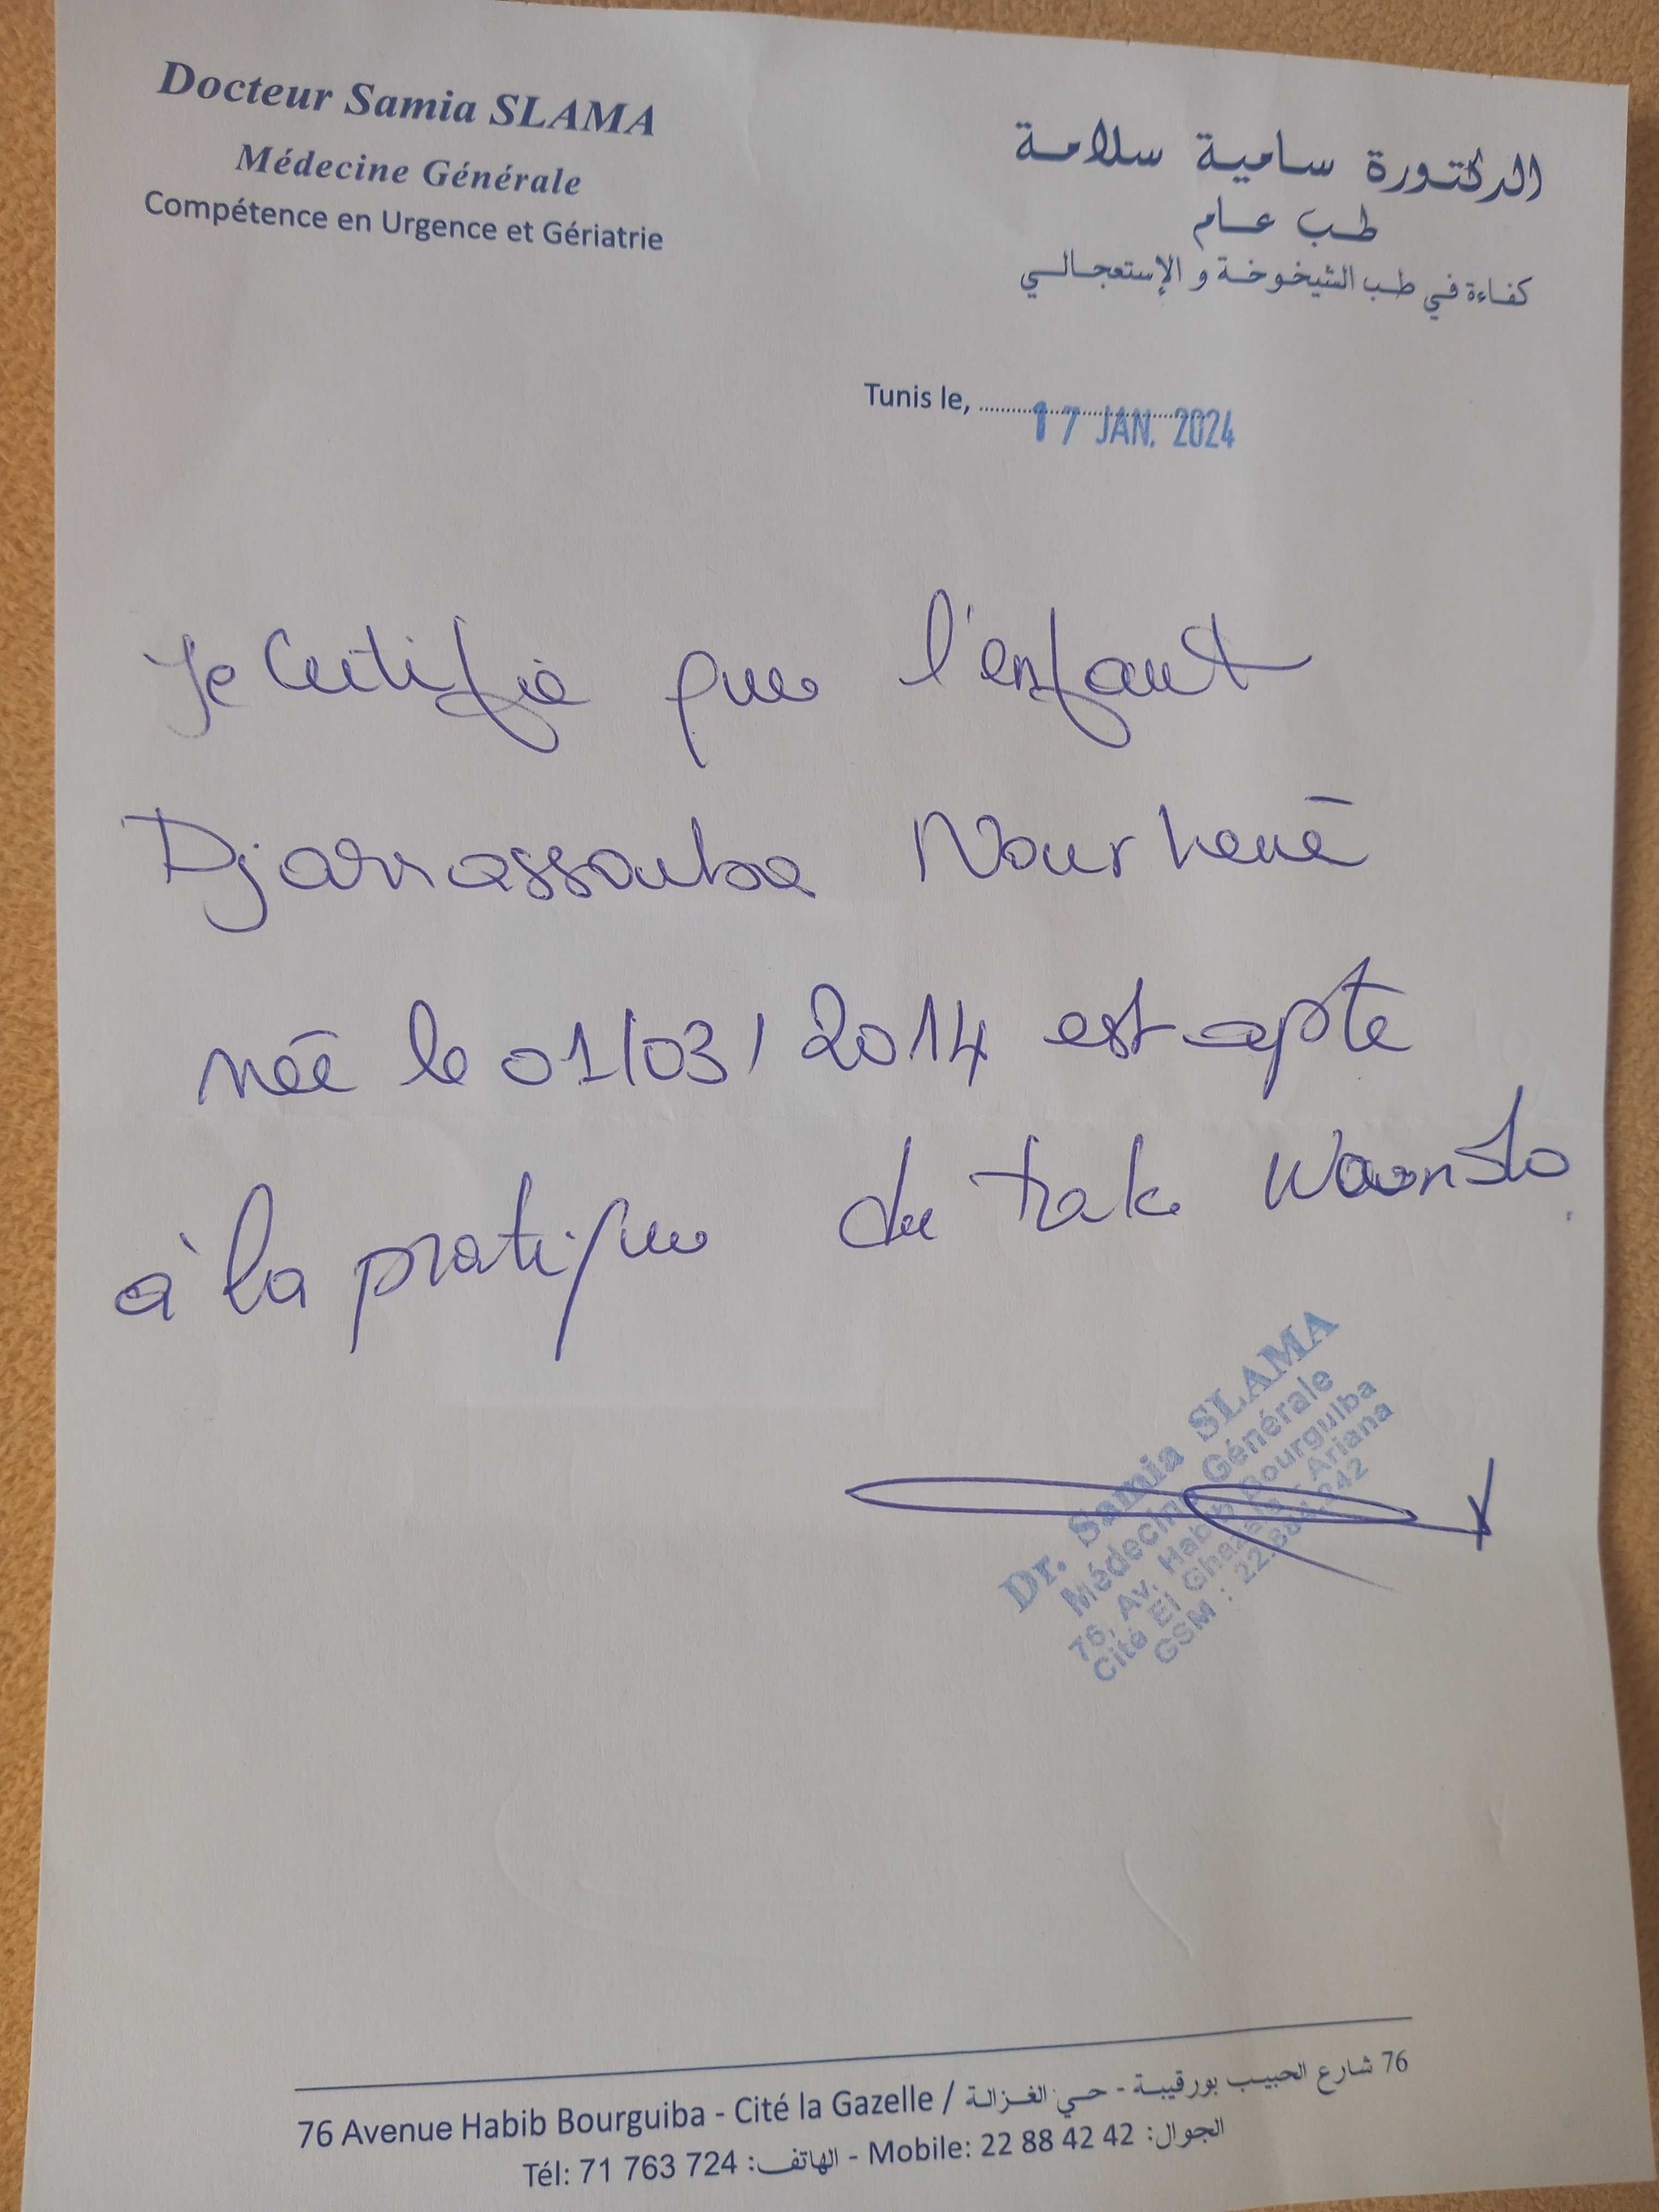 Docteur Samia SLAMA
Médecine Générale
Compétence en Urgence et Gériatrie
الدكتورة سامية سلامة
طب عام
كفاءة في طب الشيخوخة و الإستعجالي
Tunis le, 17 JAN. 2024
Je Certifie que l'enfant
Djarrassouba Nourhene
née le 01/03/2014 est apte
à la pratique du
Dr. Samia SLAMA
Médecine Générale
76, Av. Habib Bourguiba
Cité El Ghazala - Ariana
GSM : 22.884.242
76 Avenue Habib Bourguiba - Cité la Gazelle / 76 شارع الحبيب بورقيبة - حي الغزالة
Tél: 71 763 724 :الهاتف - Mobile: 22 88 42 42 :الجوال